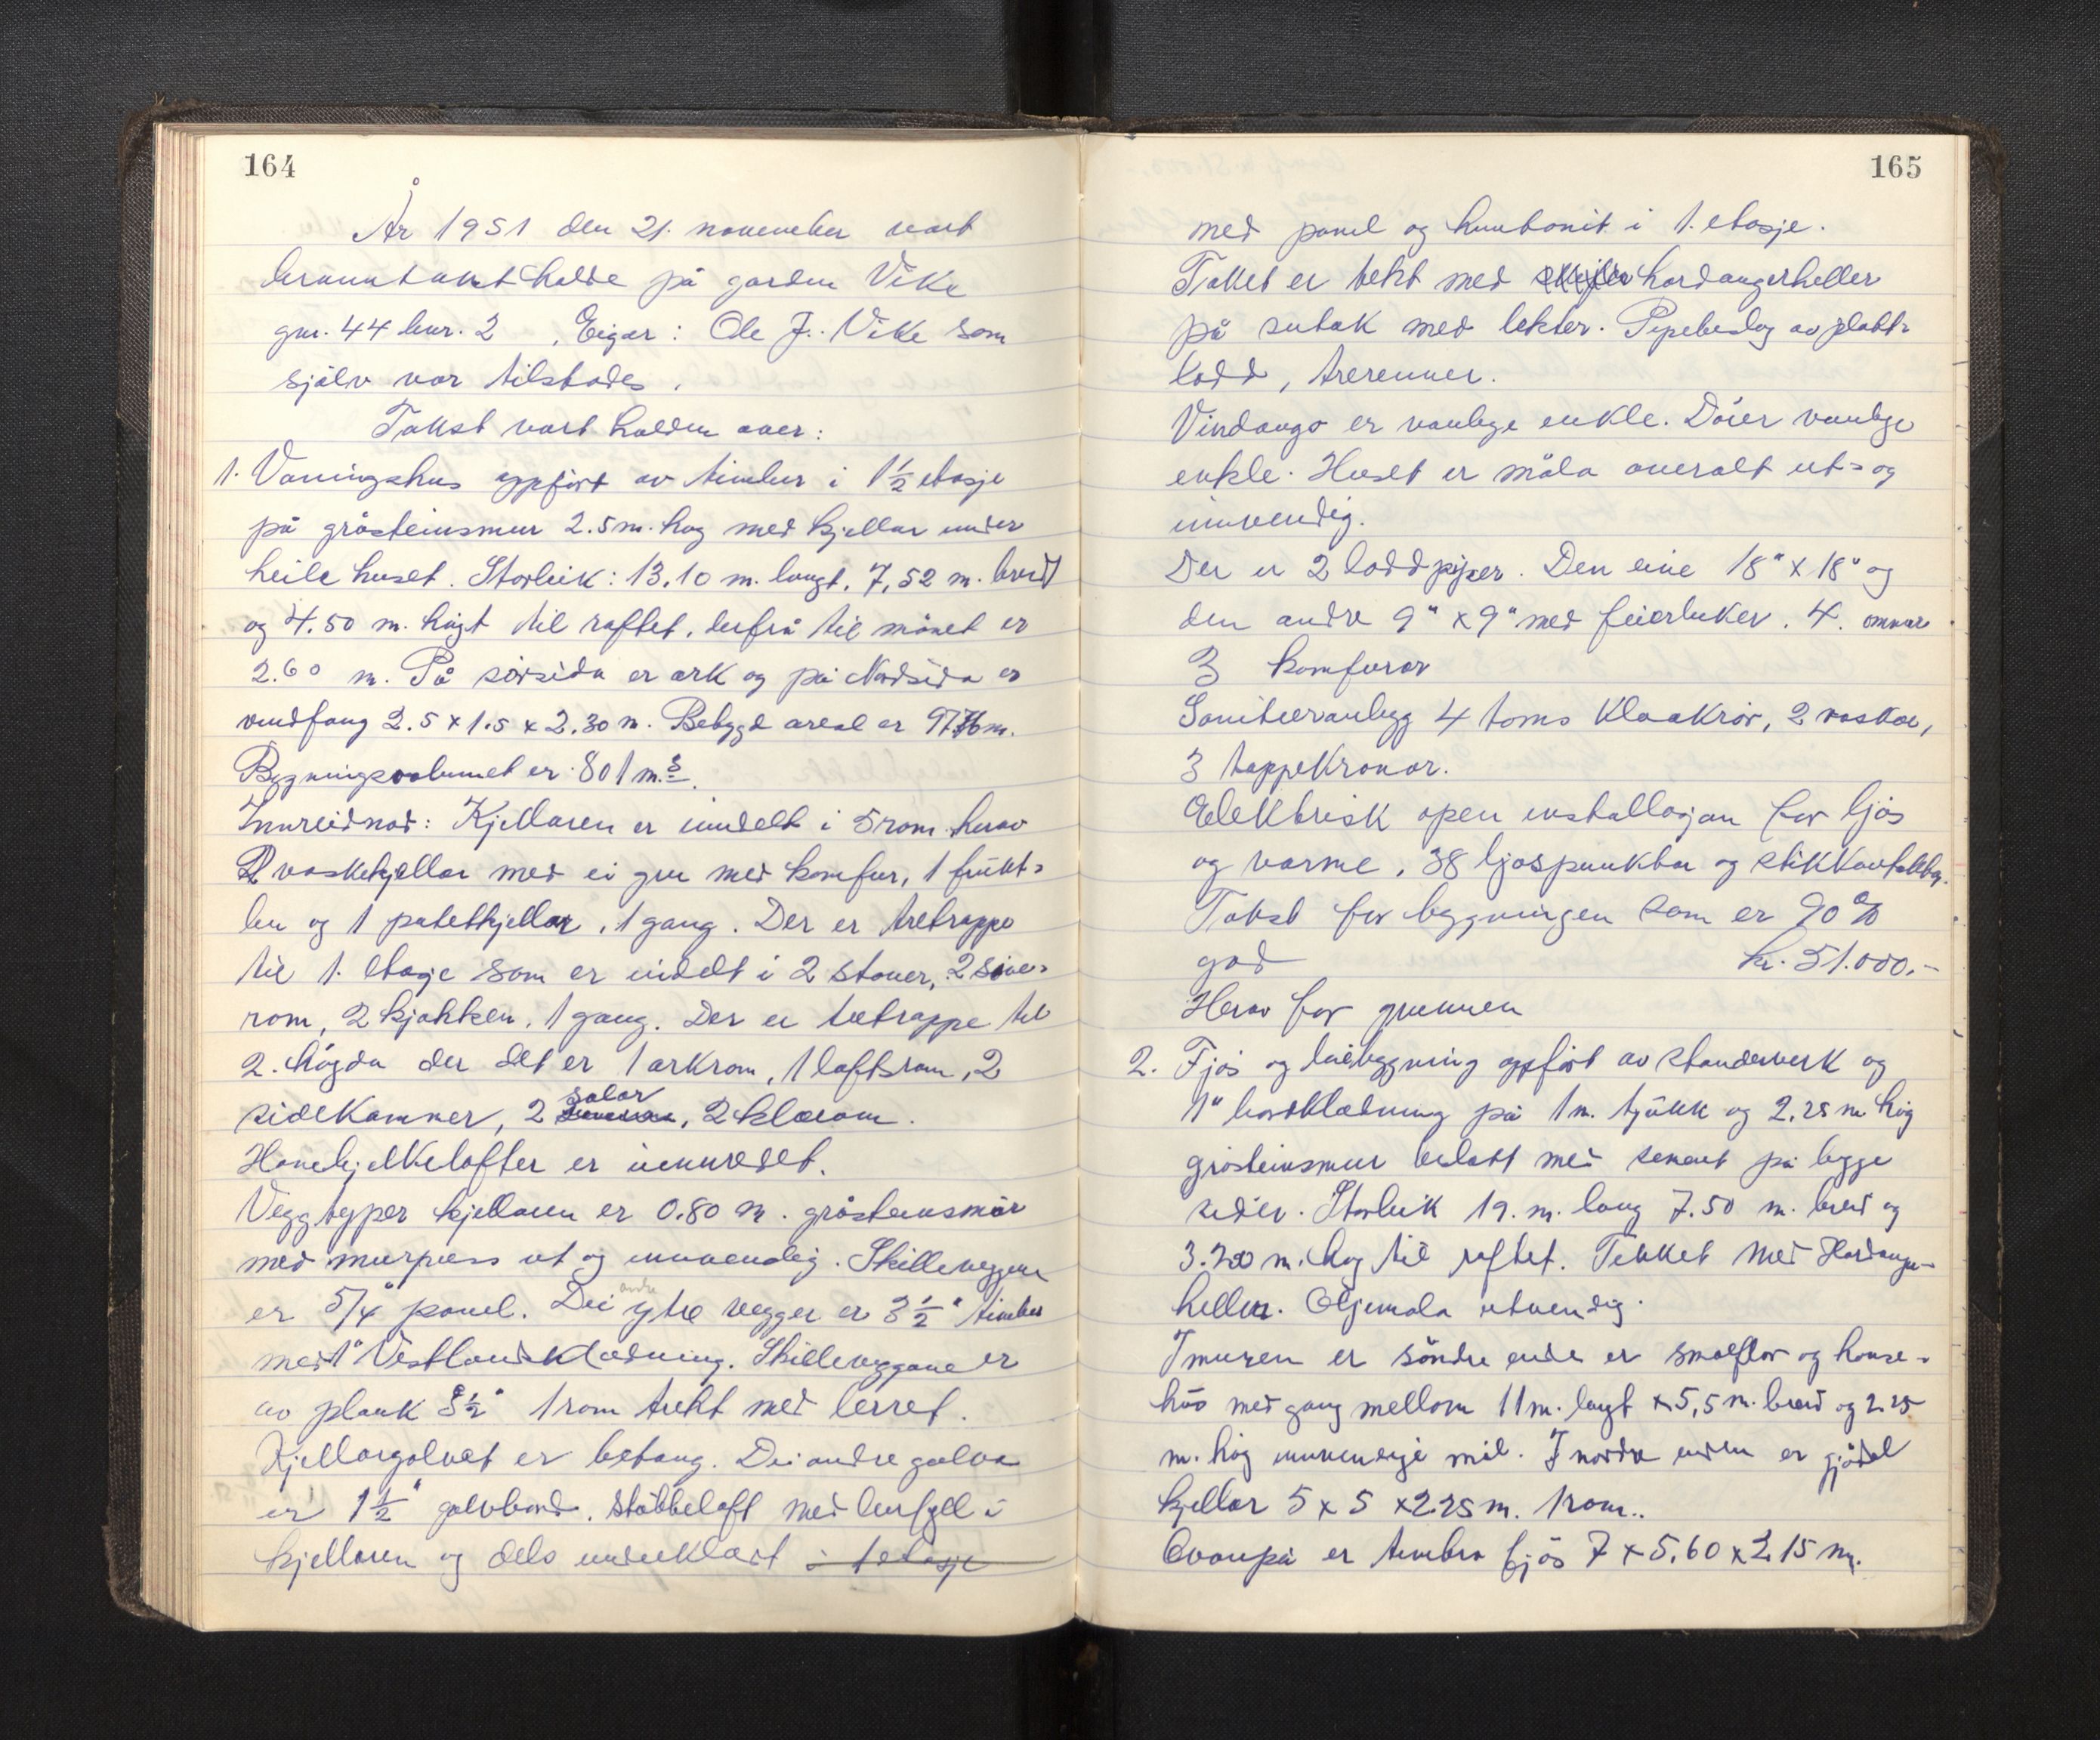 164
År 1951 den 21. november vart
branntakst halde på garden Vike
gnr. 44 bnr. 2 , Eigar: Ole J. Vike som
sjölv var tilstades.
Takst vart halden over:
1. Våningshus oppfört av timber i 1½ etasje
på gråsteinsmur 2.5 m. høg med kjellar under
heile huset. Storleik: 13.10 m. langt. 7,52 m. bredt
og 4.50 m. högt til raftet, derfrå til mönet er
2.60 m. På sörsida er ark og på Nordsida er
vindfang 2.5 x 1.5 x 2.30 m. Bebygd areal er m.
Bygningsvolumet er 801 m.3.
Innreidnad: Kjellaren er inndelt i 5 rom herav
vaskekjellar med ei gru med komfur, 1 frukt-
bu og 1 potetkjellar, 1 gang. Der er tretrappe
til 1. etasje som er inndelt i 2 stover, 2 sove-
rom, 2 kjøkken, 1 gang. Der er tretrappe til
2. högda der det er 1 arkrom, 1 loftsrom, 2
sidekammer, 2 salar, 2 klærom.
Hanebjelkelofter er uinnredet.
Veggtyper kjellaren er 0.80 m. gråsteinsmur
med murpuss ut og innvendig. Skilleveggene
er 5/4" panel. Dei andre ytre vegger er 3½" timber
med 1" Vestlandsklædning. Skilleveggane er
av plank 3½" 1 rom trekt med lerret.
Kjellargolvet er betong. Dei andre golva
er 1½" golvbord. Stubbeloft med leirfyll i
kjellaren og dels underklædt i 1 etasje
165
med panel og huntonit i 1. etasje.
Taket er tekt med hardangerheller
på sutak med lekter. Pipebeslag av platt-
lodd, trerenner.
Vindaugo er vanlege enkle. Dörer vanlege
enkle. Huset er måla overalt ut- og
innvendig.
Der er 2 loddpiper. Den eine 18" x 18" og
den andre 9" x 9" med feierluker. 4. omnar
3 komfurar
Sanitæranlegg 4 toms Kloakrör, 2 vaskar,
3 tappekranar.
Elektrisk open installasjon for ljos
og varme, 38 ljospunktar og stikkontaktar.
Takst for bygningen som er 90%
god kr. 51.000.-
Herav for grunnen
2. Fjös og löebygning oppfört av standerverk og
1" bordklædning på 1 m. tjukk og 2.25 m hög
gråsteinsmur beslått med sement på begge
sider. Storleik 19. m. lang 7.50 m. breid og
3.200 m. høg til raftet. Tekket med Hardanger-
heller. Oljemala utvendig.
I muren er söndre ende er smalflor og hønse-
hus med gang mellom 11 m. langt x 5,5 m. breid og 2.25
m. hög innvendige mål. I nordre enden er gjödsel
kjellar 5 x 5 x 2.25 m. 1 rom..
Ovanpå er timbra fjös 7 x 5.60 x 2.15 m.